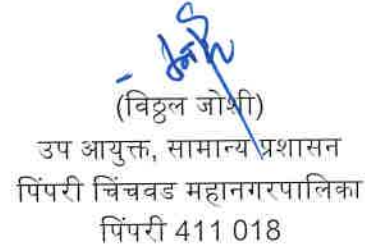 (विठ्ठल जोशी)
उप आयुक्त, सामान्य प्रशासन
पिंपरी चिंचवड महानगरपालिका
पिंपरी 411 018